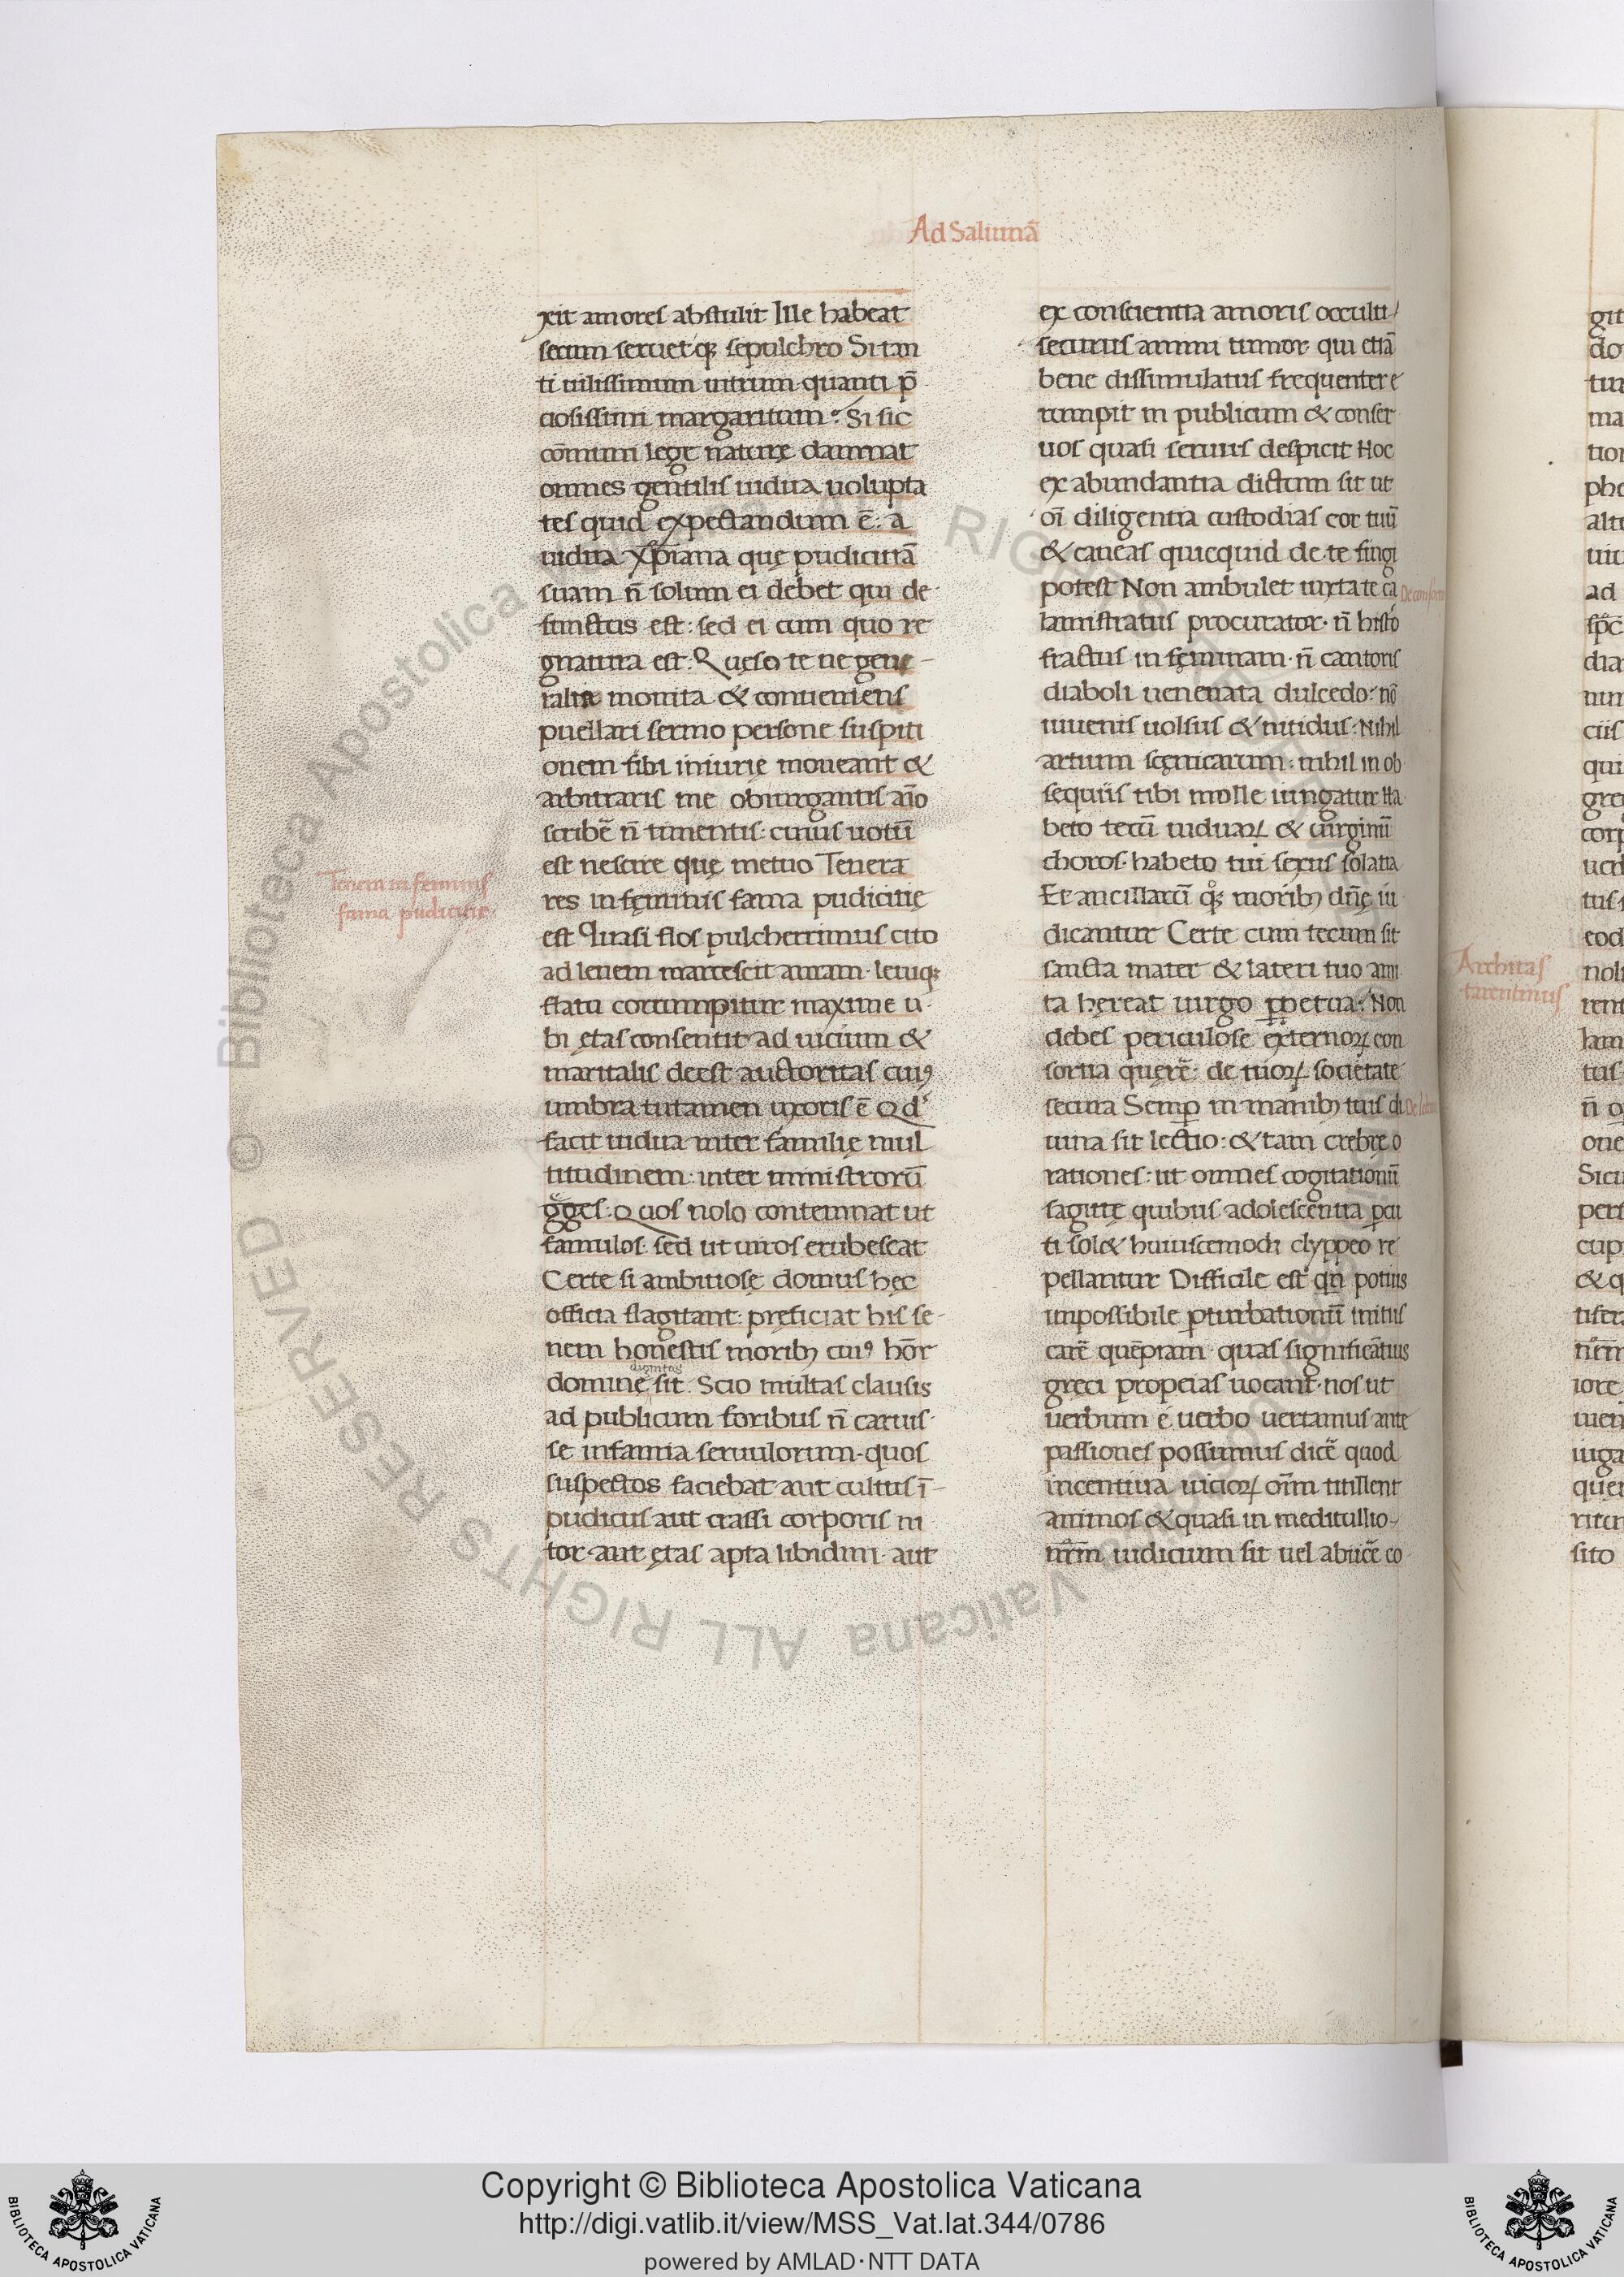 Ad Saluinā
xit amores abstulit Ille habeat
secum seruetq; sepulchro Si tan
ti uilissimum uitrum quanti p̄
ciosissimi margaritum? Si sic
cōmuni lege naturę damnat
omnes gentilis uidua uolupta
tes quid expectandum ē: a
uidua xp̄iana quę pudicitiā
suam n̄ solum ei debet qui de
functus est: sed ei cum quo re
gnatura est: Quęso te ne gene
ralia monita & conueniens
puellari sermo persone suspiti
onem tibi iniurię moueant &
arbitraris me obiurgantis aīo
scribē n̄ timentis: cuius uotū
est nescire quę metuo Tenera
res in fęminis fama pudicitię
est Quasi flos pulcherrimus cito
ad leuem marcescit auram leuiq;
flatu corrumpitur maxime u
bi ętas consentit ad uicium &
maritalis deest auctoritas cui9
umbra tutamen uxoris ē Qd
facit uidua inter familię mul
titudinem: inter ministrorū
gręges: Quos nolo contemnat ut
famulos: sed ut uiros erubescat
Certe si ambitiosę domus hęc
officia flagitant: pręficiat his se
nem honestis morib; cui9 hōr
dignitas
dominę sit. Scio multas clausis
ad publicum foribus n̄ caruis
se infamia seruulorum quos
suspectos faciebat aut cultus ī
pudicus aut crassi corporis ni
tor aut ętas apta libidini aut
Tenera in feminis
fama pudicitię
ex conscientia amoris occulti
securus animi tumor qui etiā
bene dissimulatus frequenter e
rumpit in publicum & conser
uos quasi seruus despicit Hoc
ex abundantia dictum sit ut
oī diligentia custodias cor tuū
& caueas quicquid de te fingi
potest Non ambulet iuxta te ca
lamistratus procurator n̄ histo
fractus in fęminam n̄ cantoris
diaboli uenenata dulcedo: nō
iuuenis uolsus & nitidus: Nihil
artium scęnicarum: nihil in ob
sequiis tibi molle iungatur Ha
beto tecū uiduaꝝ & uirginū
choros habeto tui sexus solatia
Et ancillarū q̊; morib; dn̄ę iu
dicantur Certe cum tecum sit
sancta mater & lateri tuo ami
ta hęreat uirgo ꝑpetua: Non
debes periculose externoꝝ con
sortia quęrē: de tuoꝝ societate
secura Semꝑ in manib; tuis di
uina sit lectio: & tam crebrę o
rationes: ut omnes cogitationū
sagittę quibus adolescentia ꝑcu
ti sol& huiuscemodi clyppeo re
pellantur Difficile est qn potius
impossibile ꝑturbationū initus
carē quēpiam quas significātius
gręci propeias uocant nos ut
uerbum e uerbo uertamus ante
passiones possumus dicē quod
incentiua uicioꝝ oīm titillent
animos & quasi in meditullio
nr̄m iudicium sit uel abiicē co
Architas
tarentinus
Copyright © Biblioteca Apostolica Vaticana
http://digi.vatlib.it/view/MSS_Vat.lat.344/0786
powered by AMLAD·NTT DATA